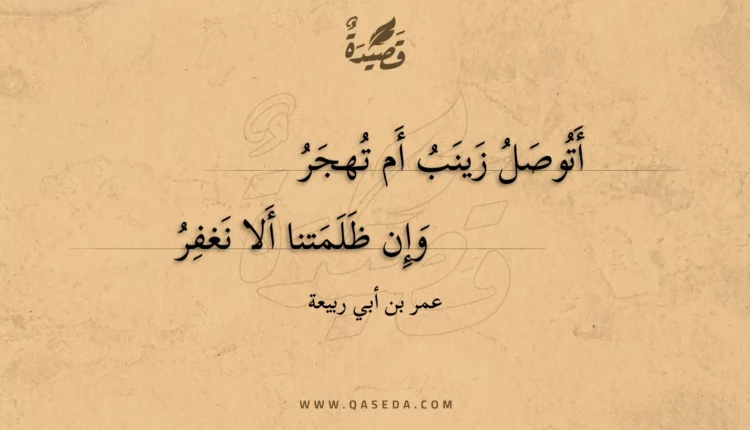 قَصِيدَةٌ
أَتُوصَلُ زَينَبُ أَم تُهجَرُ
وَإِن ظَلَمَتنا أَلا نَغفِرُ
عمر بن أبي ربيعة
WWW.QASEDA.COM